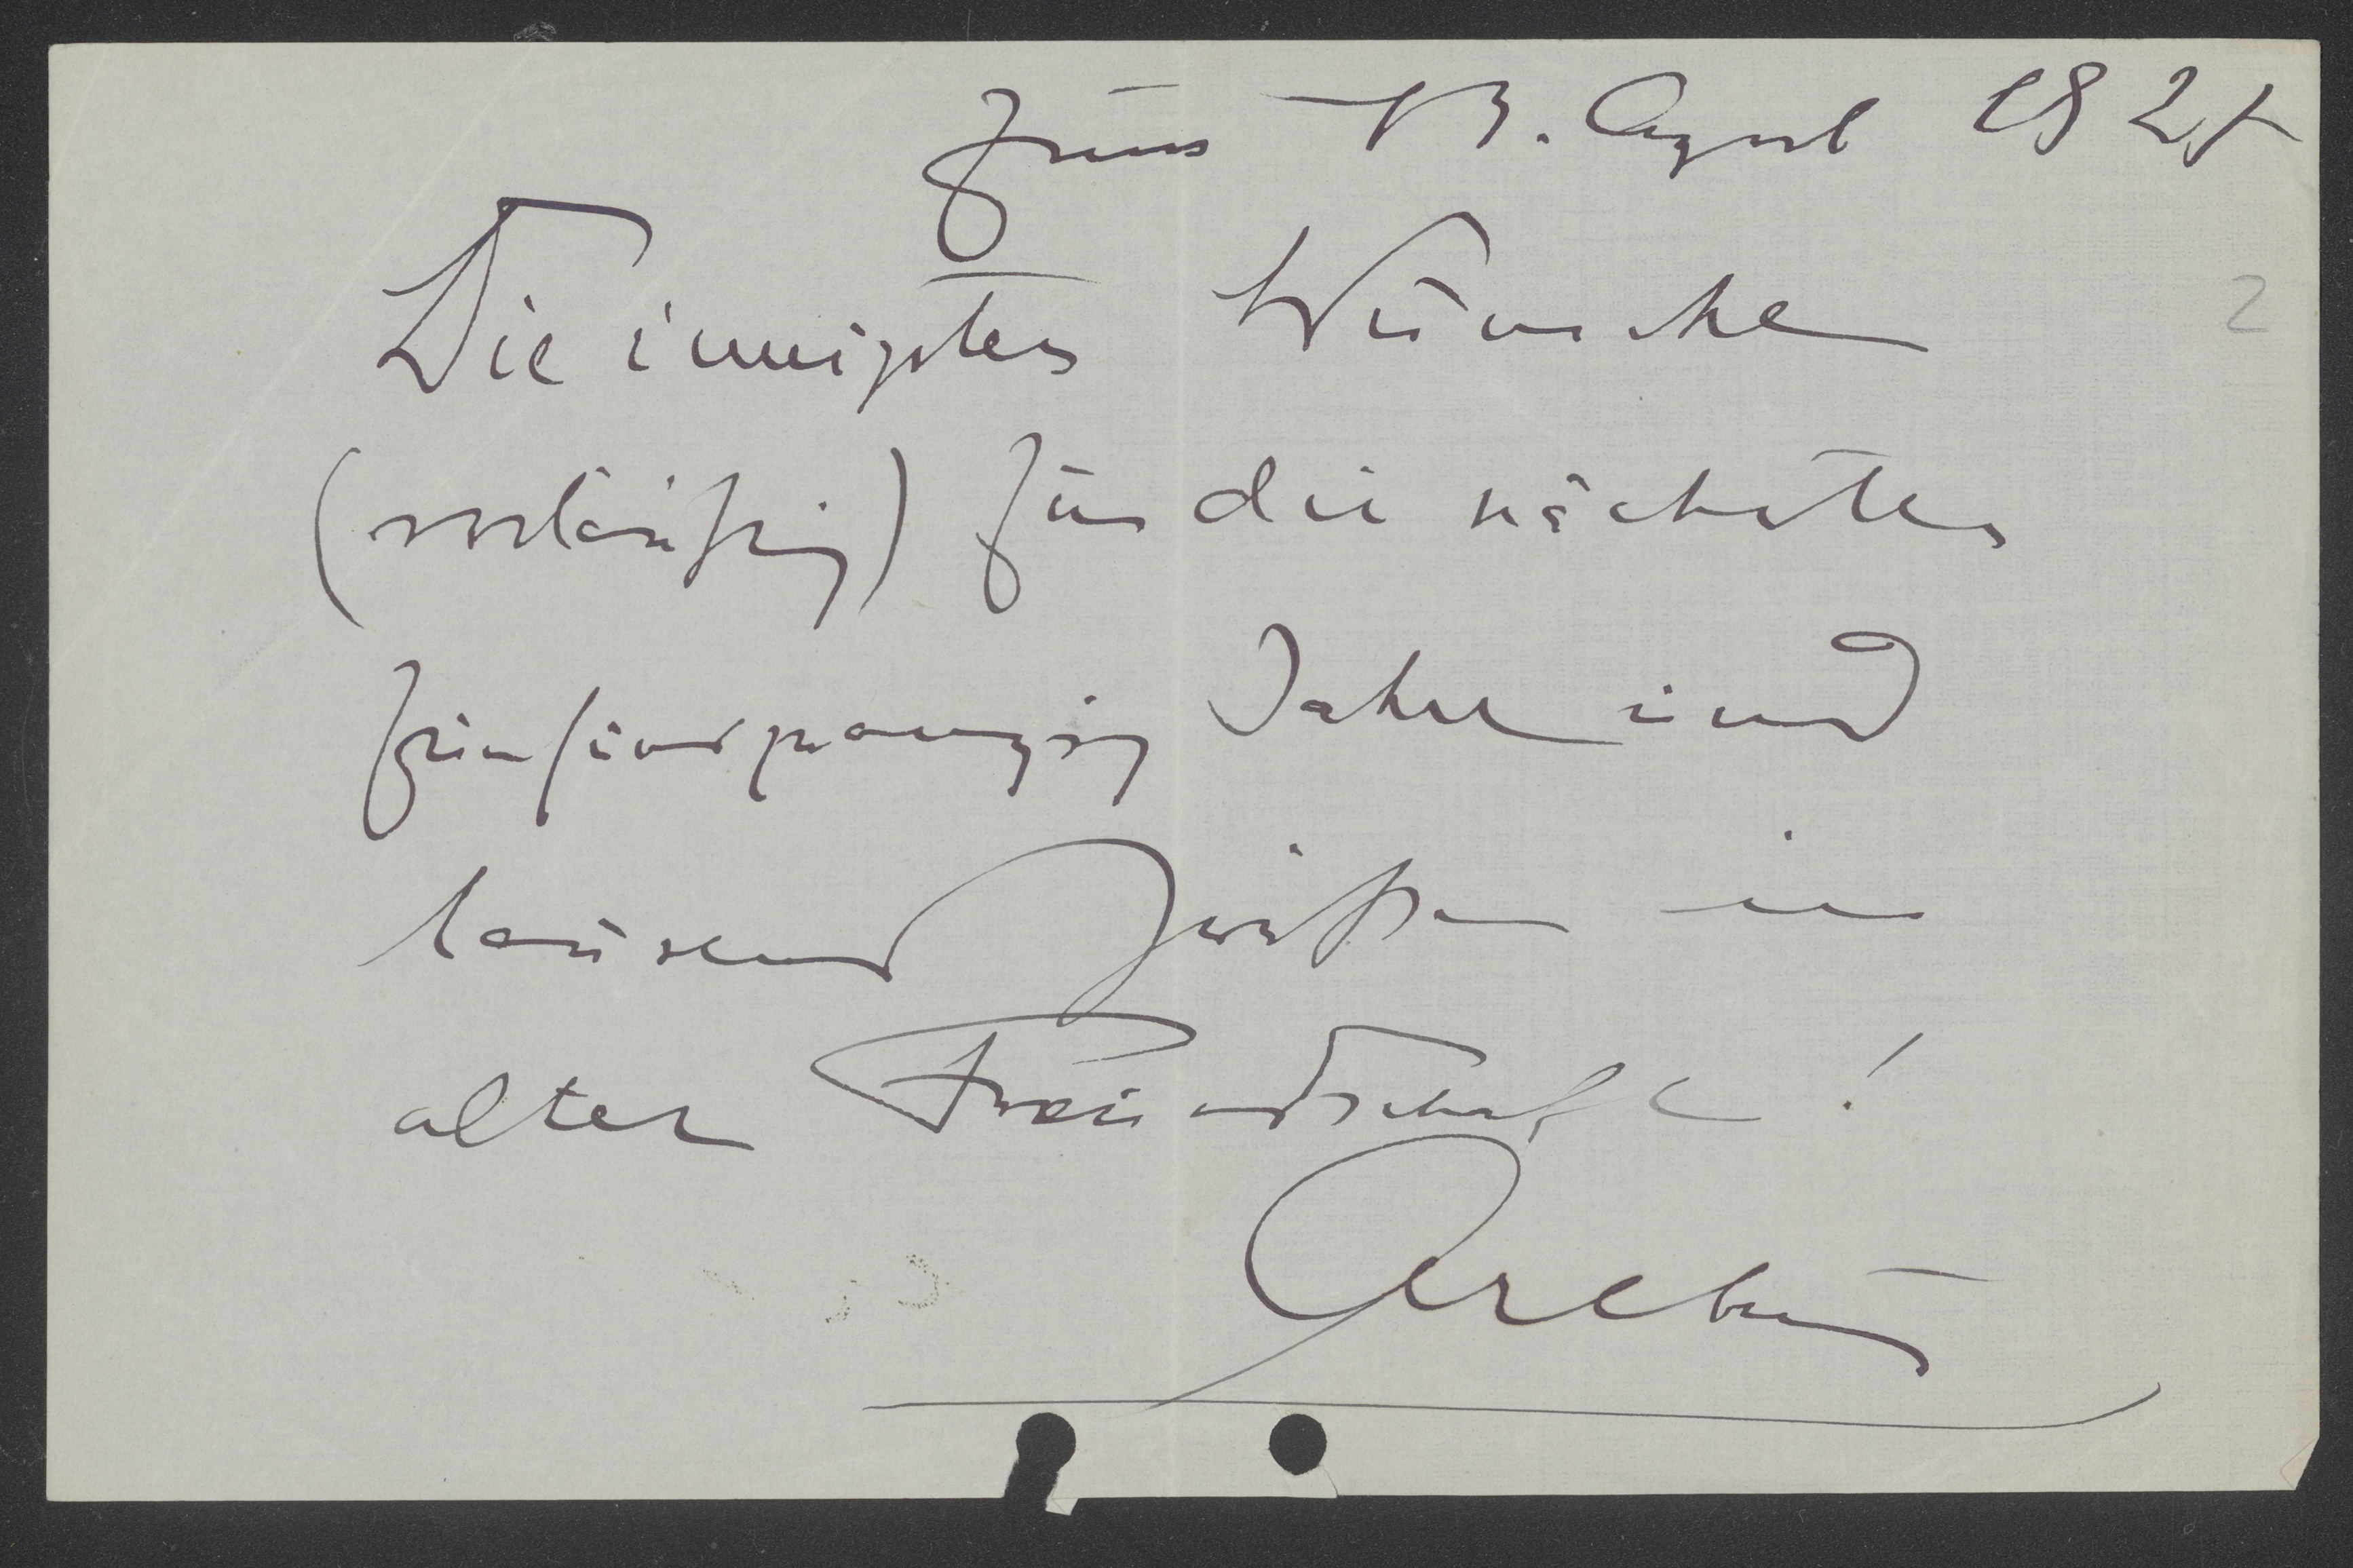 Zum 13. August 1925
Die innigsten Wünsche
2
(vorläufig) für die nächsten
fünfundzwanzig Jahre und
tausend Grüße in
alter Freundschaft!